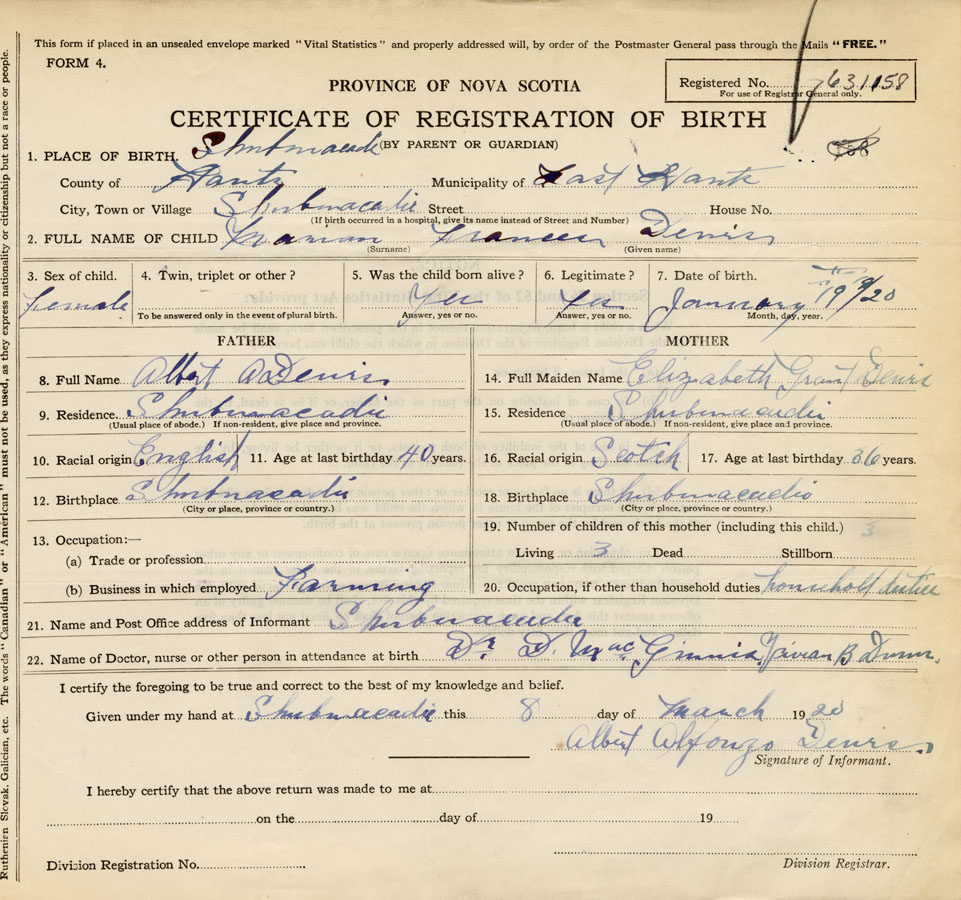 This form if placed in an unsealed envelope marked "Vital Statistics" and properly addressed will, by order of the Postmaster General pass through the Mails "FREE."
FORM 4.
PROVINCE OF NOVA SCOTIA
Registered No. 631158
For use of Registrar General only.
CERTIFICATE OF REGISTRATION OF BIRTH
(BY PARENT OR GUARDIAN)
1. PLACE OF BIRTH. Shubenacadie
County of Hants Municipality of East Hants
City, Town or Village Shubenacadie Street House No.
(If birth occurred in a hospital, give its name instead of Street and Number)
2. FULL NAME OF CHILD Marian Frances Denis
(Surname) (Given name)
3. Sex of child. 4. Twin, triplet or other? 5. Was the child born alive? 6. Legitimate? 7. Date of birth.
Female Yes Yes January 19 1920
To be answered only in the event of plural birth. Answer, yes or no. Answer, yes or no. Month, day, year.
FATHER MOTHER
8. Full Name Albert A Denis 14. Full Maiden Name Elizabeth Grant Denis
9. Residence Shubenacadie 15. Residence Shubenacadie
(Usual place of abode.) If non-resident, give place and province. (Usual place of abode.) If non-resident, give place and province.
10. Racial origin English 11. Age at last birthday 40 years. 16. Racial origin Scotch 17. Age at last birthday 36 years.
12. Birthplace Shubenacadie 18. Birthplace Shubenacadie
(City or place, province or country.) (City or place, province or country.)
13. Occupation:— 19. Number of children of this mother (including this child.) 3
(a) Trade or profession Living 3 Dead Stillborn
(b) Business in which employed Farming 20. Occupation, if other than household duties household duties
21. Name and Post Office address of Informant Shubenacadie
22. Name of Doctor, nurse or other person in attendance at birth Dr D. MacGinnis, Vivian B
I certify the foregoing to be true and correct to the best of my knowledge and belief.
Given under my hand at Shubenacadie this 8 day of March 1920
Albert Alfonzo Denis
Signature of Informant.
I hereby certify that the above return was made to me at
on the day of 19
Division Registration No. Division Registrar.
Ruthenien Slovak, Galician, etc. The words "Canadian" or "American" must not be used, as they express nationality or citizenship but not a race or people.